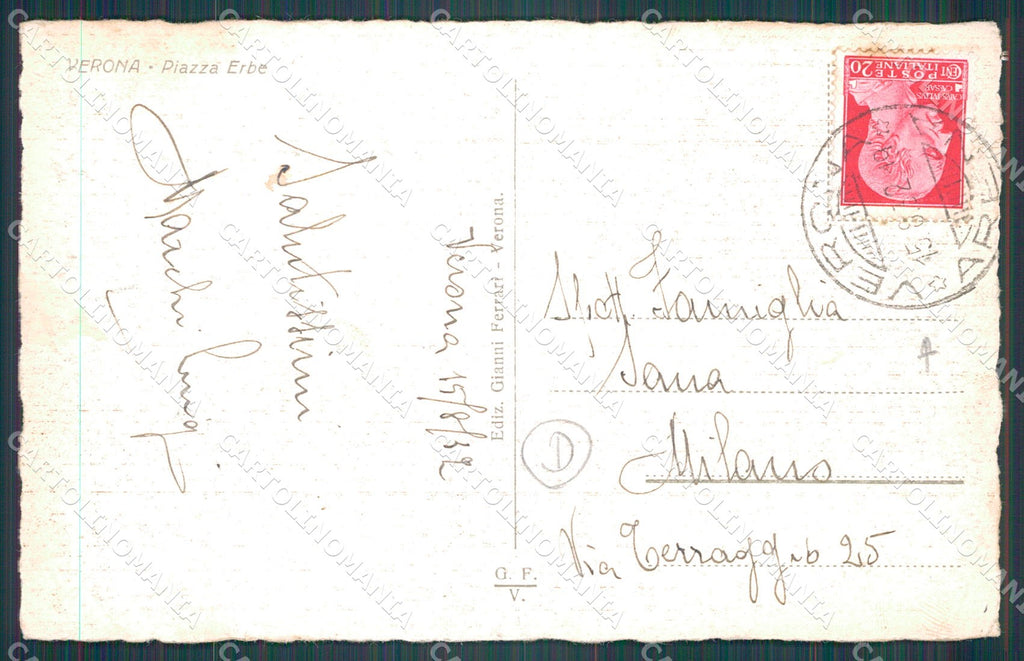 VERONA - Piazza Erbe
Salutissimi
Marchi Luigi
Verona 15/8/32
Ediz. Gianni Ferrari - Verona.
G. F.
V.
POSTE
ITALIANE
CENT 20
CAIVS IVLIVS
CAESAR
VERONA
Spett. Famiglia
Sana
Milano
Via Terraggio 25
D
CARTOLINOMANIA